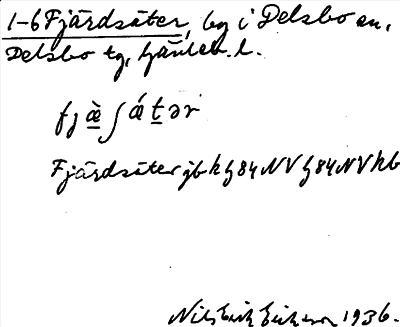 1-6 Fjärdsäter, by i Delsbo sn,
Delsbo tg, Gävleb. l.
fjæ̀ʃǽtər
Fjärdsäter gbk g84NV g84NV hb
Nils Erik Eriksson 1936.